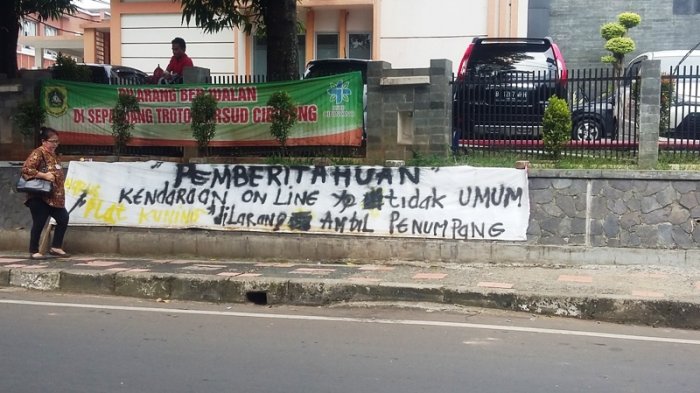 DILARANG BERJUALAN
DI SEPANJANG TROTOAR RSUD CIBINONG
"PEMBERITAHUAN"
KENDARAAN ON LINE Yg tidak UMUM
PLAT KUNING dilarang AMBIL PENUMPANG